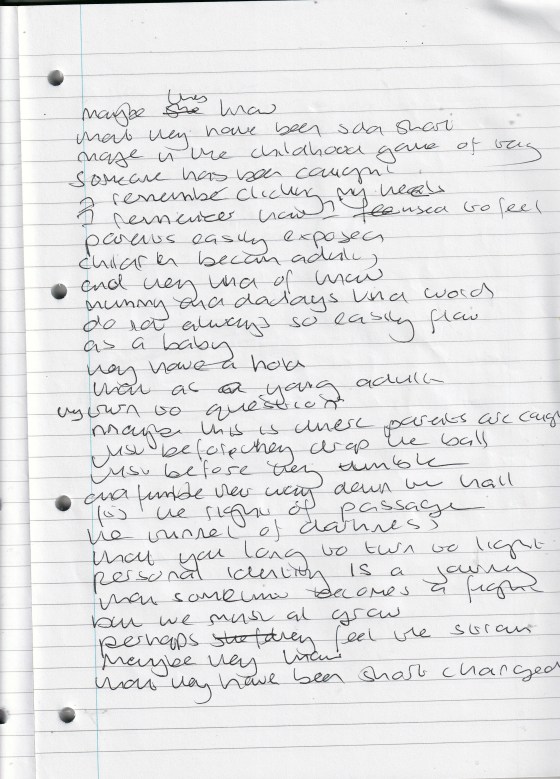 maybe they know
that they have been sold short
maybe in the childhood game of tag
someone has been caught
I remember clicking my heels
I remember how I used to feel
parents easily exposed
children became adults
and they kind of know
mummy and daddys kind words
do not always so easily flow
as a baby
they have a hold
then as a young adult
they turn to question
Maybe this is where parents are caug
just before they drop the ball
just before they tumble
and fumble their way down the hall
its the right of passage
the tunnel of darkness
that you long to turn to light
personal identity is a journey
that sometime becomes a fight
but we must all grow
perhaps they feel the strain
Maybe they know
that they have been short changed